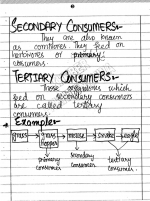 SECONDARY CONSUMERS:-
They are also known
as carnivores. They feed on
herbivores or primary
consumers.
TERTIARY CONSUMERS:-
Those organisms which
feed on secondary consumers
are called tertiary
consumers.
Example:-
grass → Grass hopper → mouse → Snake → eagle
primary consumer
secondary consumer
tertiary consumer.